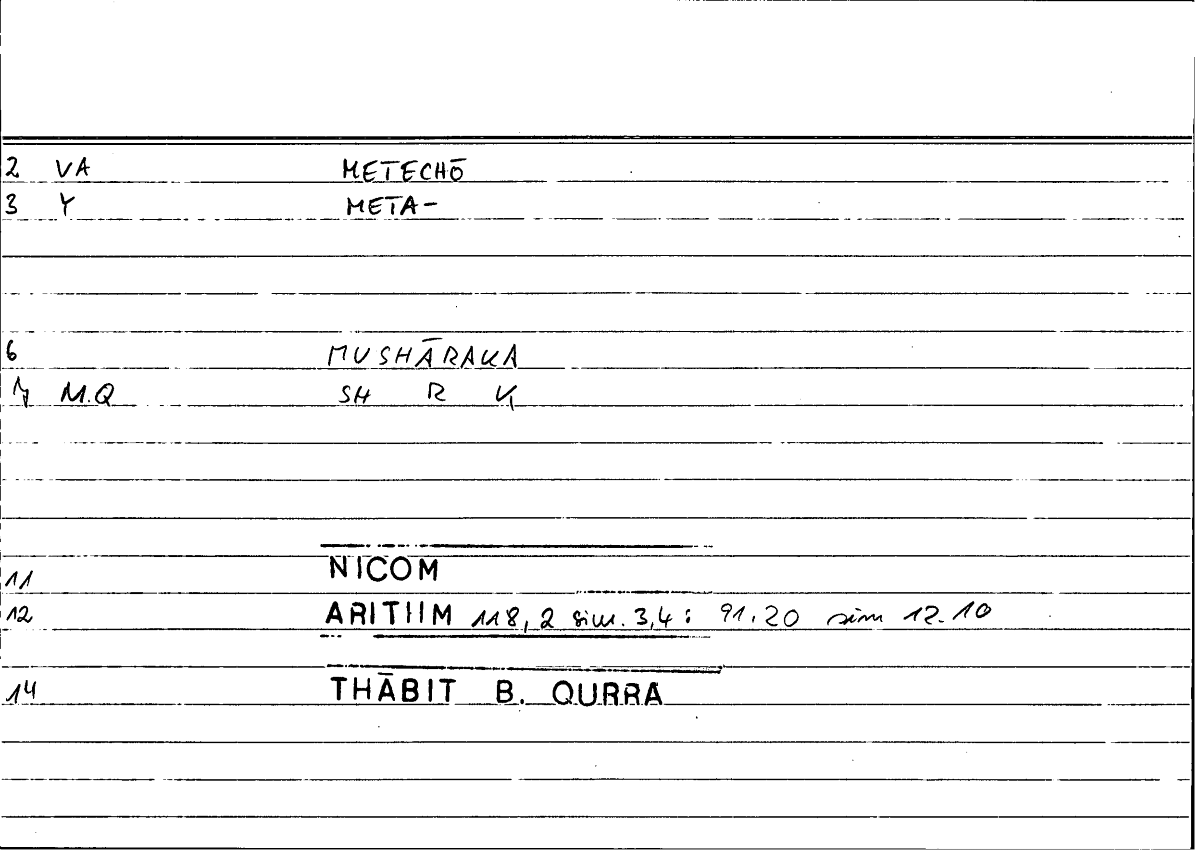 2 VA METECHŌ
3 Y META-
6 MUSHĀRAKA
7 M.Q SH R K
11 NICOM
12 ARITIIM 118,2 sim. 3,4: 91.20 sim 12.10
14 THĀBIT B. QURRA